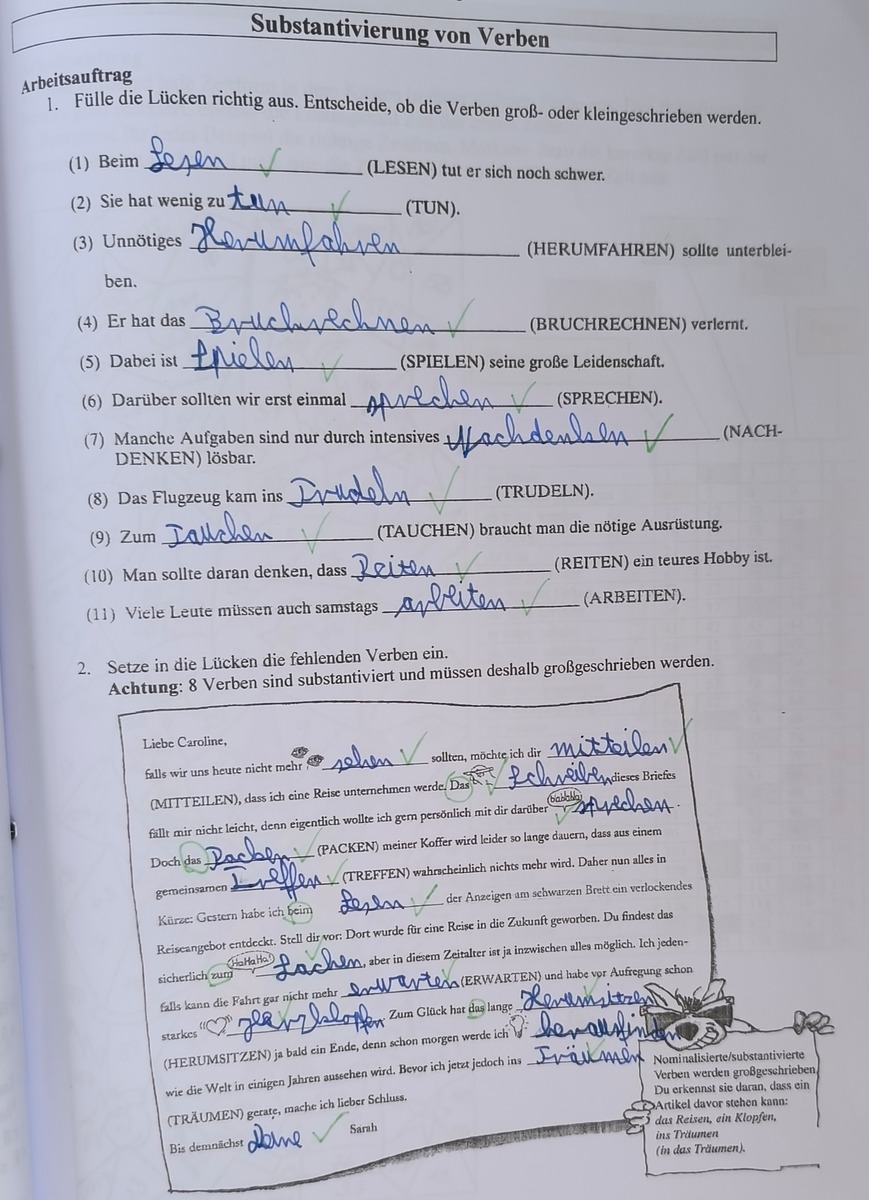 Substantivierung von Verben
Arbeitsauftrag
1. Fülle die Lücken richtig aus. Entscheide, ob die Verben groß- oder kleingeschrieben werden.
(1) Beim Lesen (LESEN) tut er sich noch schwer.
(2) Sie hat wenig zu tun (TUN).
(3) Unnötiges Herumfahren (HERUMFAHREN) sollte unterblei-
ben.
(4) Er hat das Bruchrechnen (BRUCHRECHNEN) verlernt.
(5) Dabei ist Spielen (SPIELEN) seine große Leidenschaft.
(6) Darüber sollten wir erst einmal sprechen (SPRECHEN).
(7) Manche Aufgaben sind nur durch intensives Nachdenken (NACH-
DENKEN) lösbar.
(8) Das Flugzeug kam ins Trudeln (TRUDELN).
(9) Zum Tauchen (TAUCHEN) braucht man die nötige Ausrüstung.
(10) Man sollte daran denken, dass Reiten (REITEN) ein teures Hobby ist.
(11) Viele Leute müssen auch samstags arbeiten (ARBEITEN).
2. Setze in die Lücken die fehlenden Verben ein.
Achtung: 8 Verben sind substantiviert und müssen deshalb großgeschrieben werden.
Liebe Caroline,
falls wir uns heute nicht mehr sehen sollten, möchte ich dir mitteilen
(MITTEILEN), dass ich eine Reise unternehmen werde. Das Schreiben dieses Briefes
fällt mir nicht leicht, denn eigentlich wollte ich gern persönlich mit dir darüber blablabla sprechen.
Doch das Packen (PACKEN) meiner Koffer wird leider so lange dauern, dass aus einem
gemeinsamen Treffen (TREFFEN) wahrscheinlich nichts mehr wird. Daher nun alles in
Kürze: Gestern habe ich beim Lesen der Anzeigen am schwarzen Brett ein verlockendes
Reiseangebot entdeckt. Stell dir vor: Dort wurde für eine Reise in die Zukunft geworben. Du findest das
sicherlich zum HaHaHa! Lachen, aber in diesem Zeitalter ist ja inzwischen alles möglich. Ich jeden-
falls kann die Fahrt gar nicht mehr erwarten (ERWARTEN) und habe vor Aufregung schon
starkes Herzklopfen. Zum Glück hat das lange Herumsitzen
(HERUMSITZEN) ja bald ein Ende, denn schon morgen werde ich herausfinden
wie die Welt in einigen Jahren aussehen wird. Bevor ich jetzt jedoch ins Träumen
(TRÄUMEN) gerate, mache ich lieber Schluss.
Bis demnächst Deine Sarah
Nominalisierte/substantivierte
Verben werden großgeschrieben
Du erkennst sie daran, dass ein
Artikel davor stehen kann:
das Reisen, ein Klopfen,
ins Träumen
(in das Träumen).